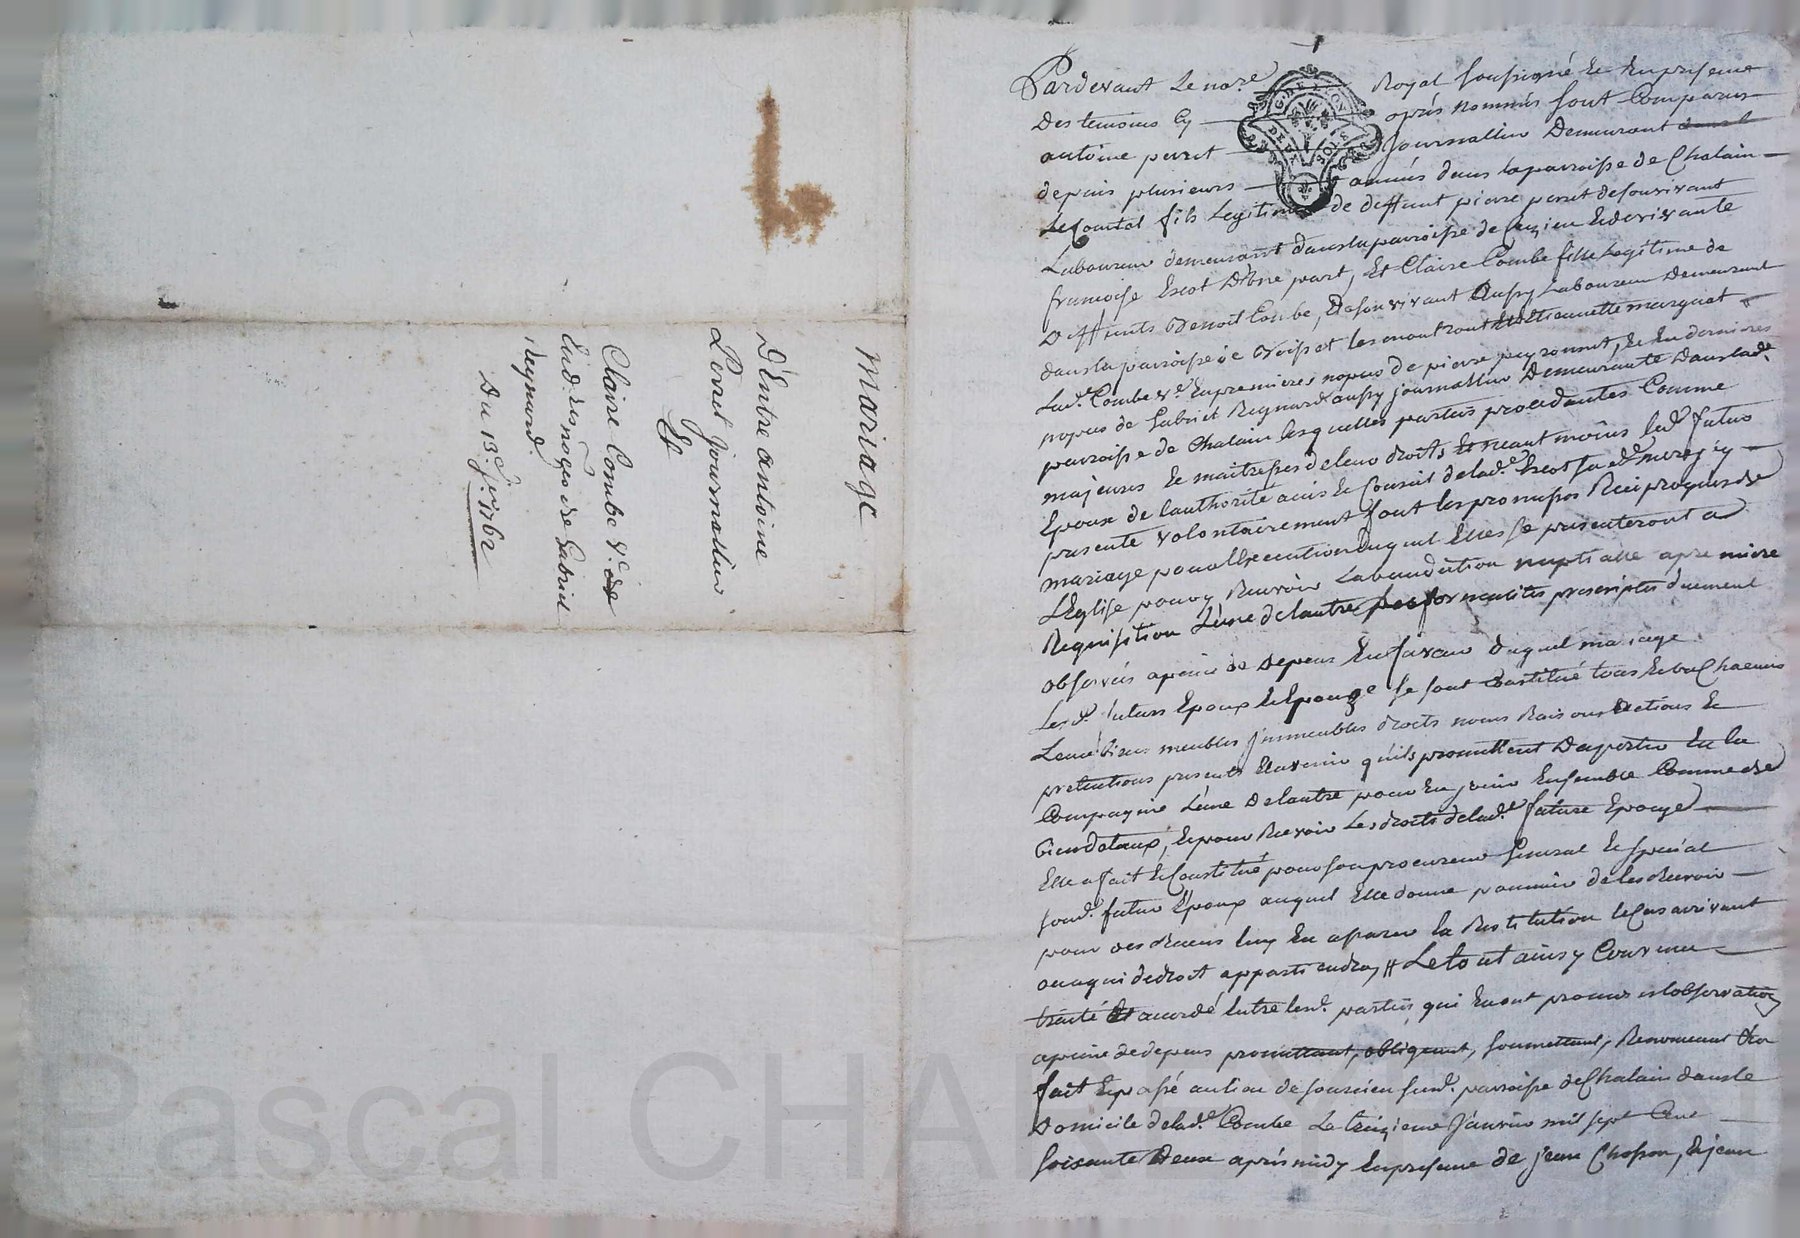 Mariage
D'Entre antoine
Perret Journallier
Et
Claire Combe V.e de
En d.res nopces de Gabriel
Regnard.
Du 13.e j.er 1762
Pardevant Le no.re Royal soussigné Et En presence
Des temoins Cy après nommés sont Comparus
antoine perret journallier Demeurant
depuis plusieurs années dans la parroisse de Chalain
Le Comtal fils Legitime de deffunt pierre perret de son vivant
Laboureur demeurant dans la parroisse de Et de vivante
francoise Escot D'Une part, Et Claire Combe fille Legitime de
Deffunts Benoit Combe, De son vivant Aussy Laboureur Demeurant
dans la parroisse de Boisset les montrond Et Etiennette marguet
Lad.e Combe v.e En premieres nopces de pierre peyronnet, Et En dernieres
nopces de Gabriel Regnard aussy journallier Demeurante Dans lad.e
parroisse de Chalain lesquelles parties procedantes Comme
majeures Et maitresses de leurs droits Et neant moins led. futur
Epoux de l'authorité avis Et Conseil de lad.e Escot sa mere icy
presente volontairement font les promesses Reciproques de
mariage pour l'Execution duquel Elles se presenteront a
L'Eglise pour y Recevoir La benediction nuptialle a premiere
Requisition L'une de l'autre les formalités prescriptes duement
observées a peine de Depens En faveur duquel mariage
Les d. futurs Epoux Et Epouze se sont Constitué tous Et Un Chacuns
Leurs biens meubles Immeubles droits noms Raisons Actions Et
pretentions presents Et avenir qu'ils promettent D'aporter En la
Compagnie L'une De l'autre pour En jouir Ensemble Comme de
bien dotaux, Et pour Recevoir Les droits de lad.e future Epouze
Elle a fait Et Constitué pour son procureur General Et special
sond. futur Epoux auquel Elle donne pouvoir de les Recevoir
pour ses deniers luy En assurer la Restitution le Cas arrivant
ou a qui de droit appartiendra, Le tout ainsy Convenu
traité Et accordé Entre lesd. parties qui En ont promis l'observation
a peine de depens promettant, obligeant, soumettant, Renonceant
fait Et passé au lieu de sus d. parroisse de Chalain dans le
Domicile de lad.e Combe Le treizieme Janvier mil sept Cent
soixante Deux après midy En presence de jean Chosson, Et jean
G. DE LYON
DEUX SOLS
Pascal CHAREYRON